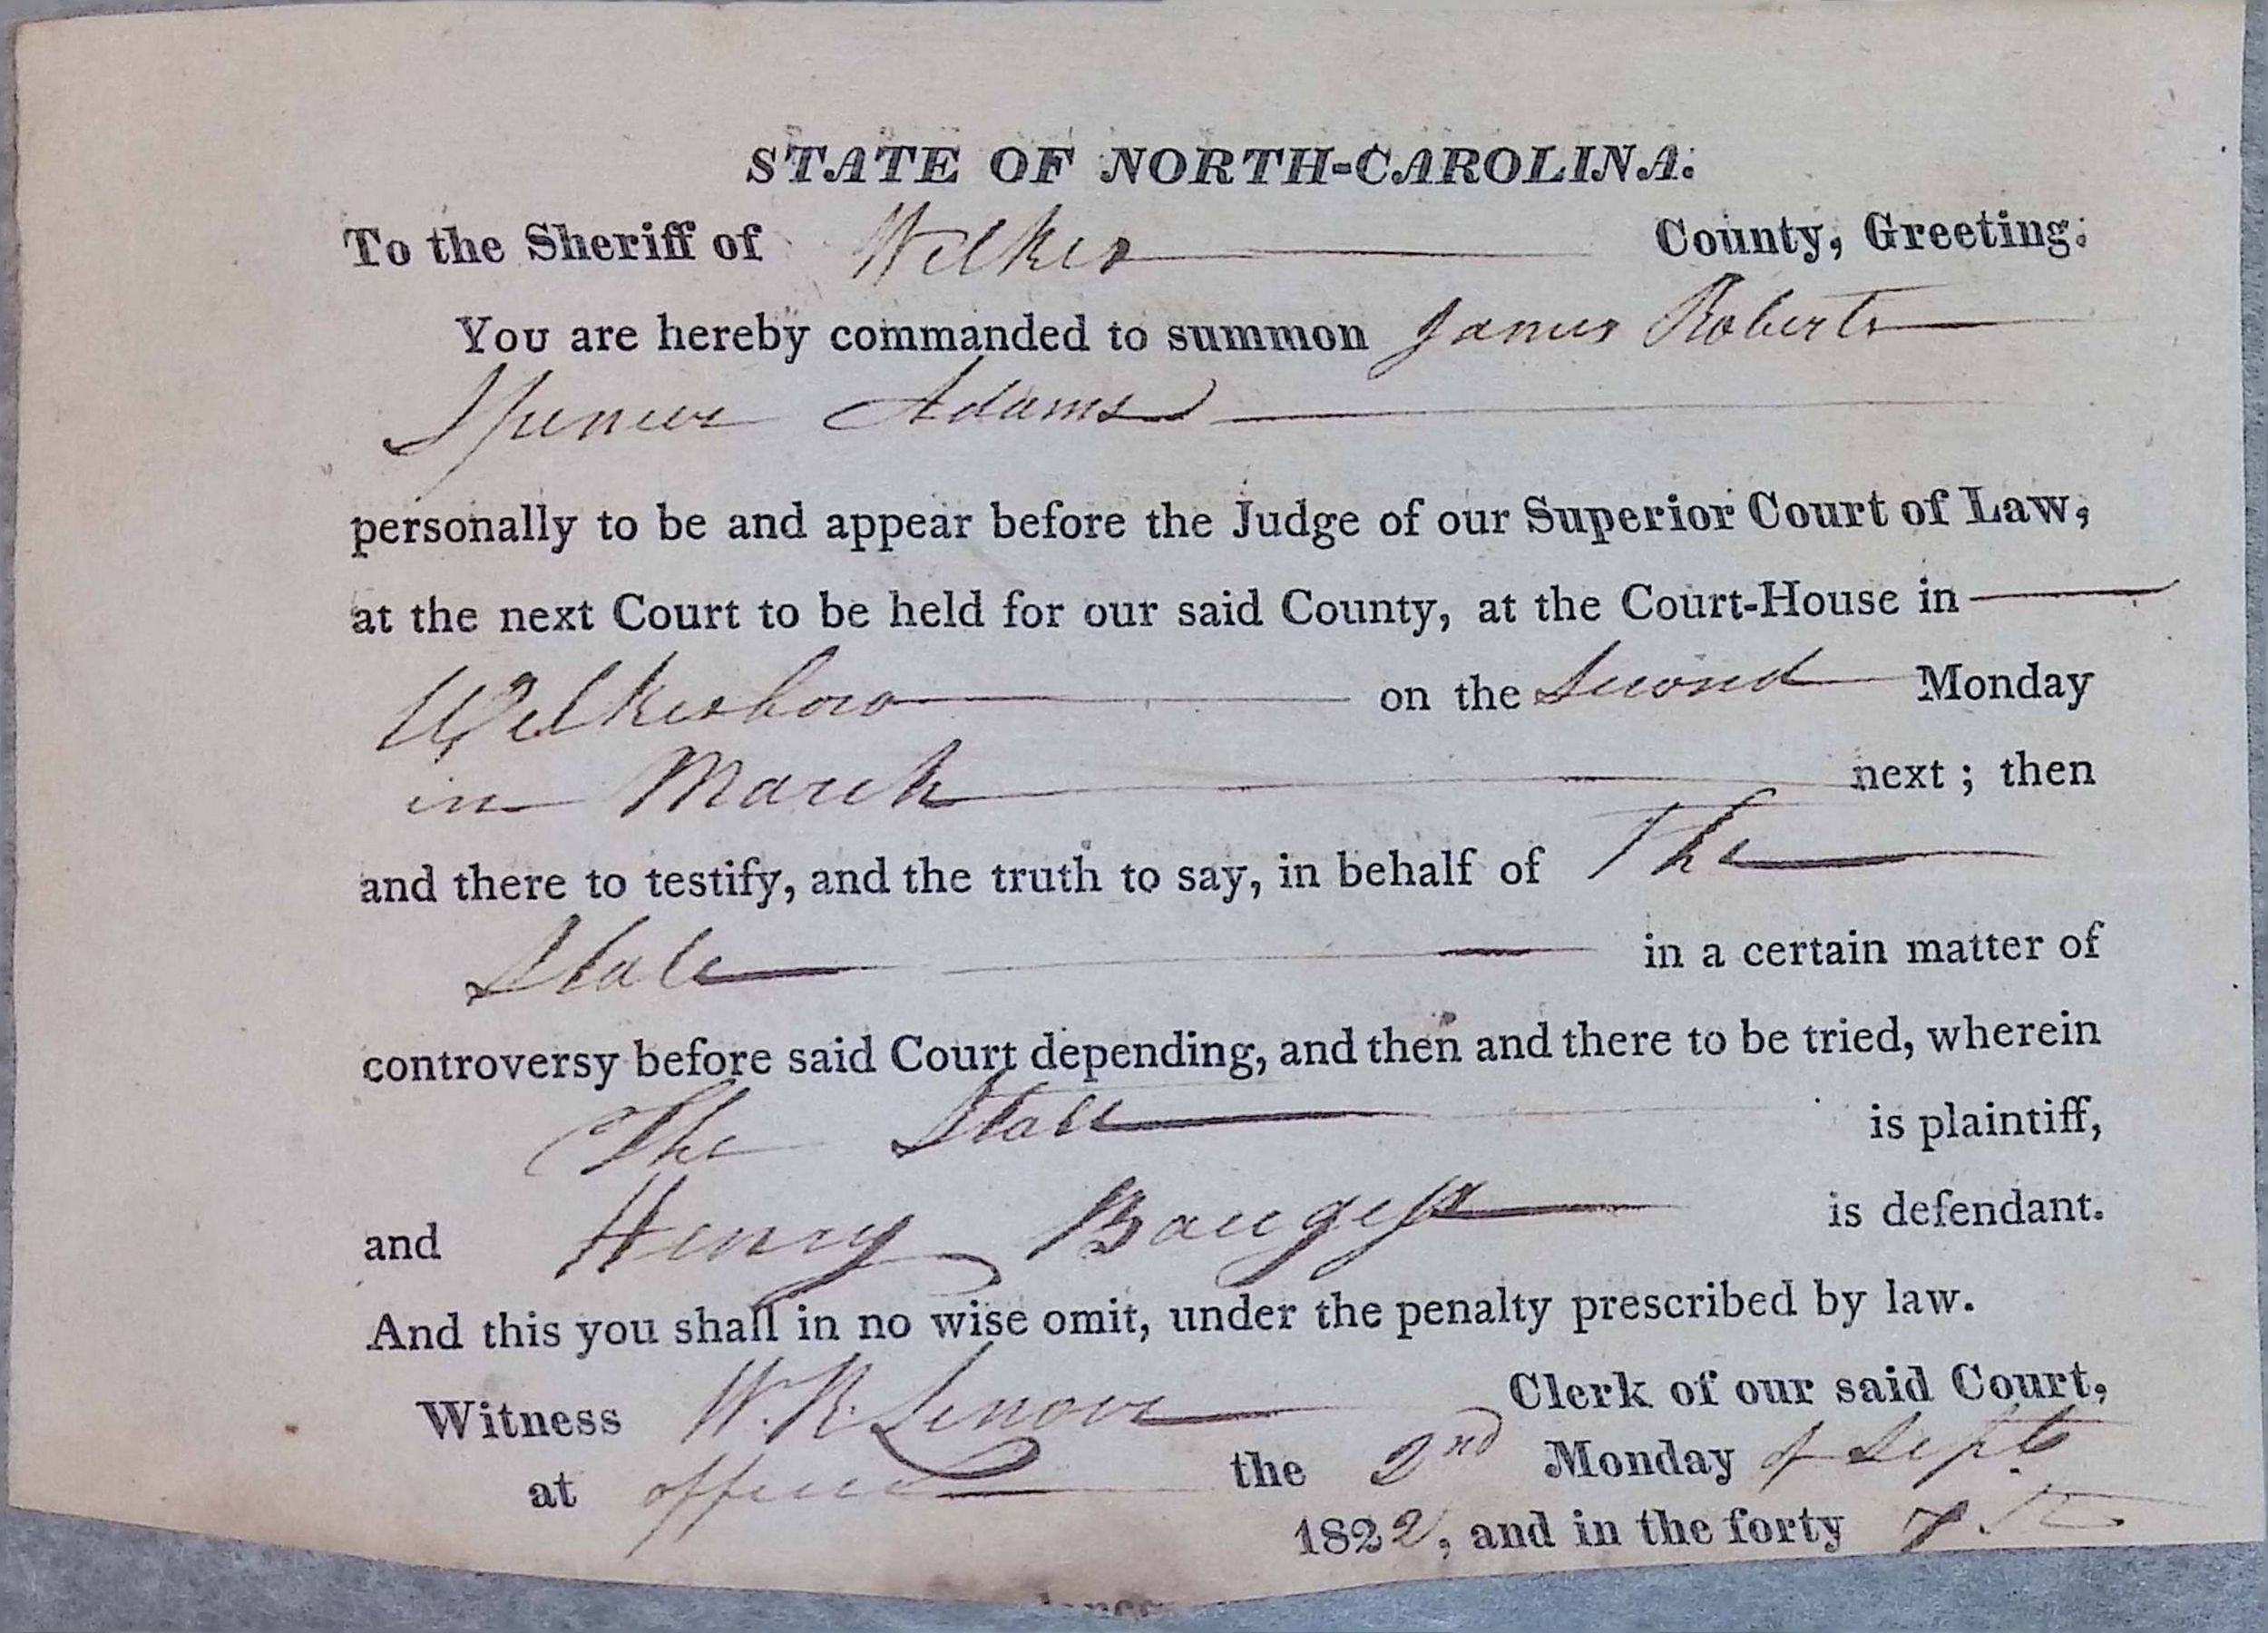 STATE OF NORTH-CAROLINA.
To the Sheriff of Wilkes County, Greeting:
You are hereby commanded to summon James Roberts
Spencer Adams
personally to be and appear before the Judge of our Superior Court of Law,
at the next Court to be held for our said County, at the Court-House in
Wilkesboro on the second Monday
in March next; then
and there to testify, and the truth to say, in behalf of The
State in a certain matter of
controversy before said Court depending, and then and there to be tried, wherein
The State is plaintiff,
and Henry is defendant.
And this you shall in no wise omit, under the penalty prescribed by law.
Witness W. R. Lenoir Clerk of our said Court,
at office the 2nd Monday of Sept.
1822, and in the forty 7